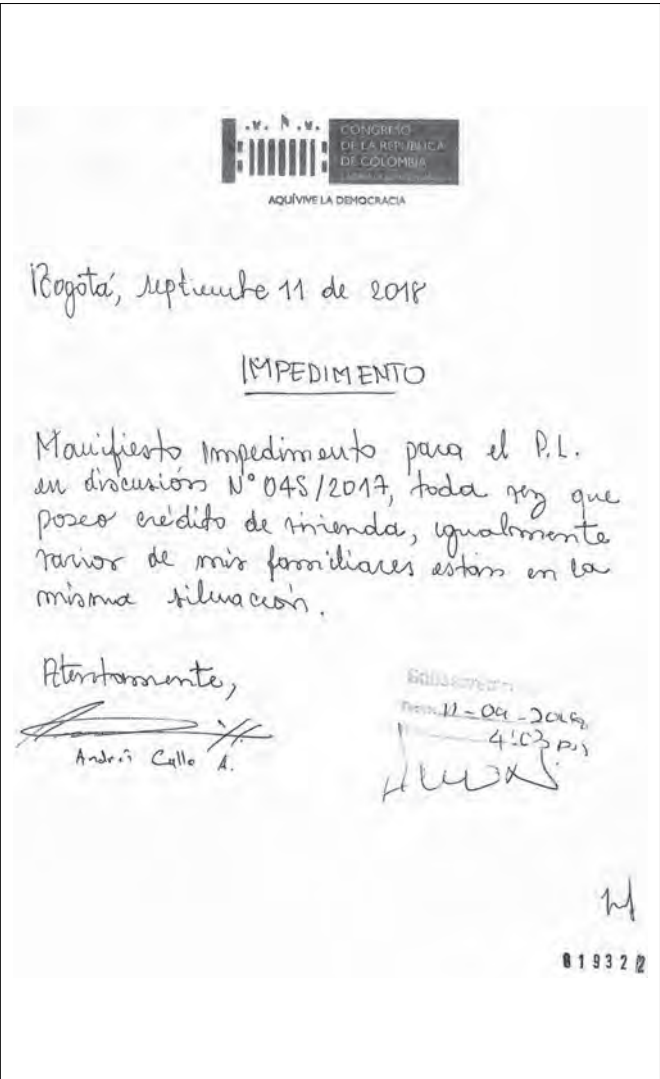 CONGRESO
DE LA REPÚBLICA
DE COLOMBIA
AQUÍ VIVE LA DEMOCRACIA
Bogotá, septiembre 11 de 2018
IMPEDIMENTO
Manifiesto impedimento para el P.L.
en discusión N° 045/2017, toda vez que
poseo crédito de vivienda, igualmente
varios de mis familiares están en la
misma situación.
Atentamente,
Andrés Calle A.
11-09-2018
4:03 pm